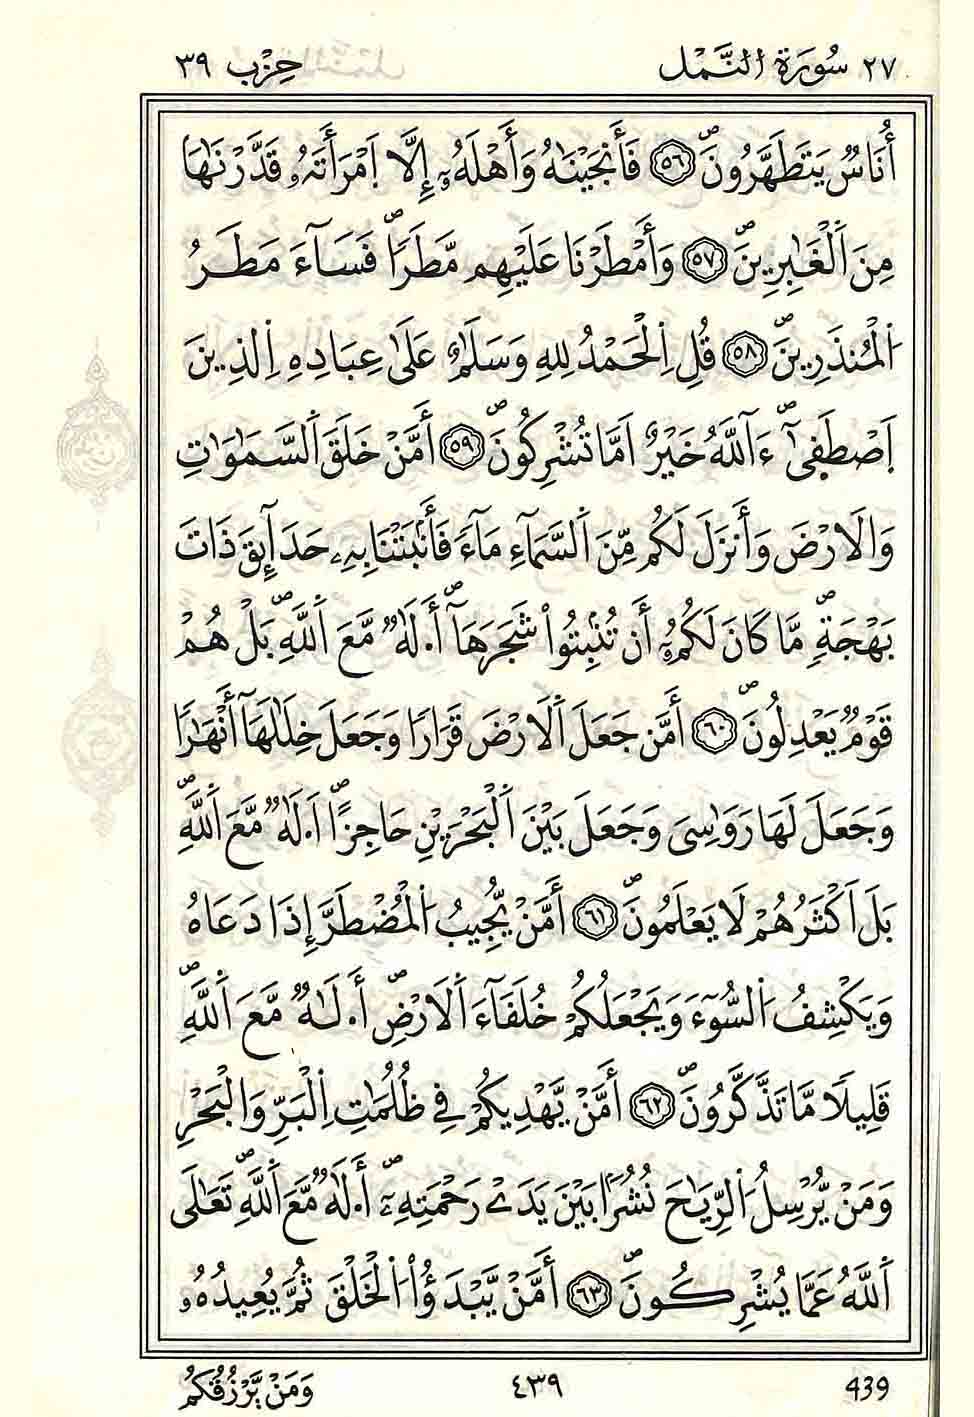 ٢٧ سُورَةُ النَّمْل حِزْب ٣٩
أُنَاسٌ يَتَطَهَّرُونَۖ ٥٦ فَأَنجَيْنَٰهُ وَأَهْلَهُۥٓ إِلَّا اَمْرَأَتَهُۥ قَدَّرْنَٰهَا
مِنَ اَلْغَٰبِرِينَۖ ٥٧ وَأَمْطَرْنَا عَلَيْهِم مَّطَراٗۖ فَسَآءَ مَطَرُ
اُلْمُنذَرِينَۖ ٥٨ قُلِ اِلْحَمْدُ لِلهِ وَسَلَٰمٌ عَلَىٰ عِبَادِهِ اِلذِينَ
اَصْطَفىٰٓۖ ءَآللَّهُ خَيْرٌ اَمَّا تُشْرِكُونَۖ ٥٩ أَمَّنْ خَلَقَ اَلسَّمَٰوَٰتِ
وَالَارْضَ وَأَنزَلَ لَكُم مِّنَ اَلسَّمَآءِ مَآءٗ فَأَنۢبَتْنَا بِهِۦ حَدَآئِقَ ذَاتَ
بَهْجَةٖۖ مَّا كَانَ لَكُمُۥٓ أَن تُنۢبِتُواْ شَجَرَهَآۖ أَ.لَٰهٞ مَّعَ اَللَّهِۖ بَلْ هُمْ
قَوْمٞ يَعْدِلُونَۖ ٦٠ أَمَّن جَعَلَ اَلَارْضَ قَرَاراٗ وَجَعَلَ خِلَٰلَهَآ أَنْهَٰراٗ
وَجَعَلَ لَهَا رَوَٰسِيَ وَجَعَلَ بَيْنَ اَلْبَحْرَيْنِ حَاجِزاًۖ اَ.لَٰهٞ مَّعَ اَللَّهِۖ
بَلَ اَكْثَرُهُمْ لَا يَعْلَمُونَۖ ٦١ أَمَّنْ يُّجِيبُ اُلْمُضْطَرَّ إِذَا دَعَاهُ
وَيَكْشِفُ اُلسُّوٓءَ وَيَجْعَلُكُمْ خُلَفَآءَ اَلَارْضِۖ أَ.لَٰهٞ مَّعَ اَللَّهِۖ
قَلِيلاٗ مَّا تَذَّكَّرُونَۖ ٦٢ أَمَّنْ يَّهْدِيكُمْ فِي ظُلُمَٰتِ اِلْبَرِّ وَالْبَحْرِ
وَمَنْ يُّرْسِلُ اُلرِّيَٰحَ نُشُراَۢ بَيْنَ يَدَےْ رَحْمَتِهِۦٓۖ أَ.لَٰهٞ مَّعَ اَللَّهِۖ تَعَٰلَى
اَللَّهُ عَمَّا يُشْرِكُونَۖ ٦٣ أَمَّنْ يَّبْدَؤُاْ اُلْخَلْقَ ثُمَّ يُعِيدُهُۥ
وَمَنْ يَّرْزُقُكُم ٤٣٩ 439